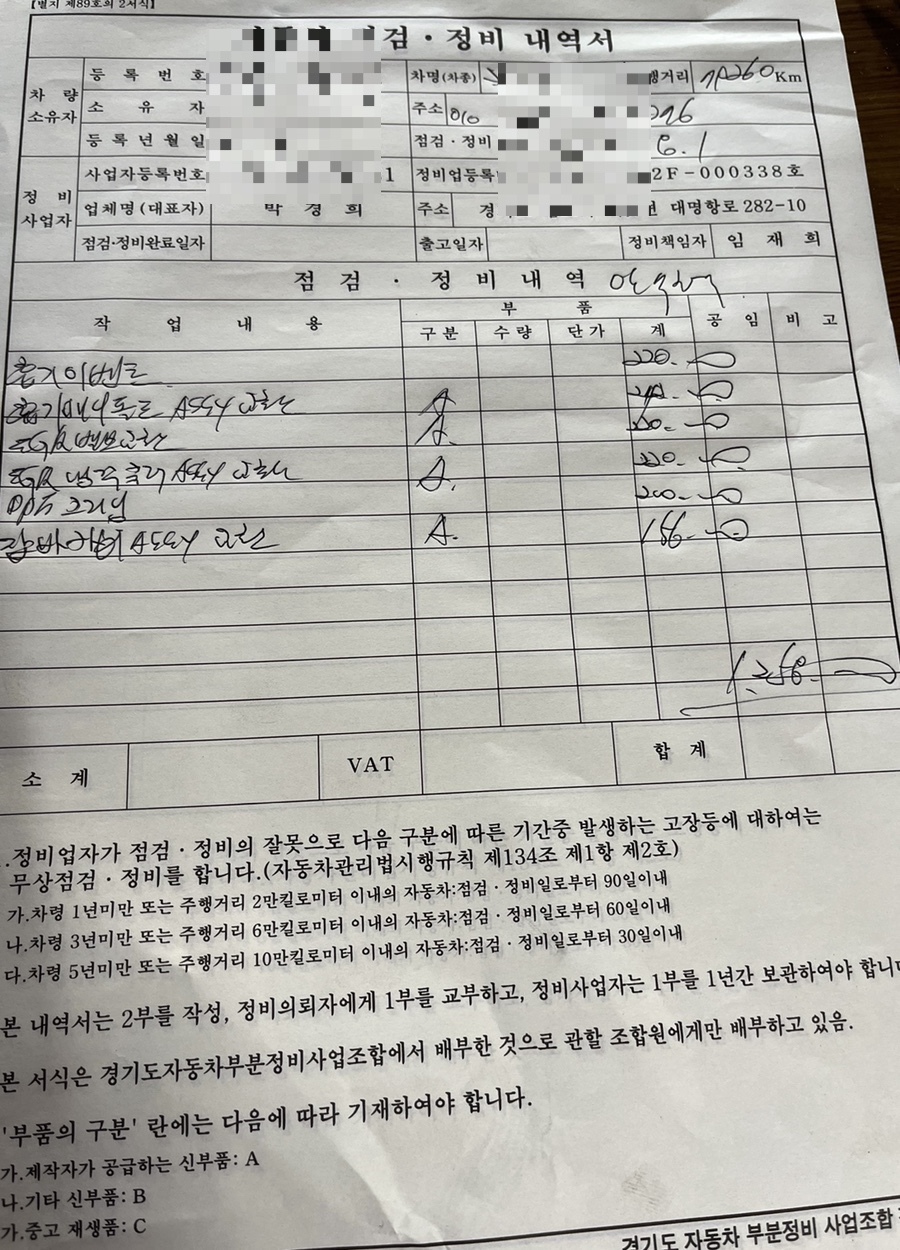 【별지 제89호의 2서식】
검 · 정비 내역서
차 량 소유자
등 록 번 호
차명(차종)
행거리 Km
소 유 자
주소 010
등 록 년 월 일
점검 · 정비
6. 1
정 비 사업자
사업자등록번호
1
정비업등록
2F-000338호
업체명(대표자) 박 경 희
주소 경 대명항로 282-10
점검·정비완료일자
출고일자
정비책임자 임 재 희
점 검 · 정 비 내 역
작 업 내 용
부 품
공 임
비 고
구 분
수 량
단 가
계
흡기
220.
흡기매니폴드 ASSY 교환 A
EGR 밸브교환 A.
EGR 냉각쿨러 ASSY 교환 A. 220.
DPF 크리닝 200.
ASSY 교환 A. 186.
1.256.
소 계
VAT
합 계
.정비업자가 점검 · 정비의 잘못으로 다음 구분에 따른 기간중 발생하는 고장등에 대하여는
무상점검 · 정비를 합니다.(자동차관리법시행규칙 제134조 제1항 제2호)
가.차령 1년미만 또는 주행거리 2만킬로미터 이내의 자동차:점검 · 정비일로부터 90일이내
나.차령 3년미만 또는 주행거리 6만킬로미터 이내의 자동차:점검 · 정비일로부터 60일이내
다.차령 5년미만 또는 주행거리 10만킬로미터 이내의 자동차:점검 · 정비일로부터 30일이내
본 내역서는 2부를 작성, 정비의뢰자에게 1부를 교부하고, 정비사업자는 1부를 1년간 보관하여야 합니다
본 서식은 경기도자동차부분정비사업조합에서 배부한 것으로 관할 조합원에게만 배부하고 있음.
'부품의 구분' 란에는 다음에 따라 기재하여야 합니다.
가.제작자가 공급하는 신부품: A
나.기타 신부품: B
가.중고 재생품: C
경기도 자동차 부분정비 사업조합